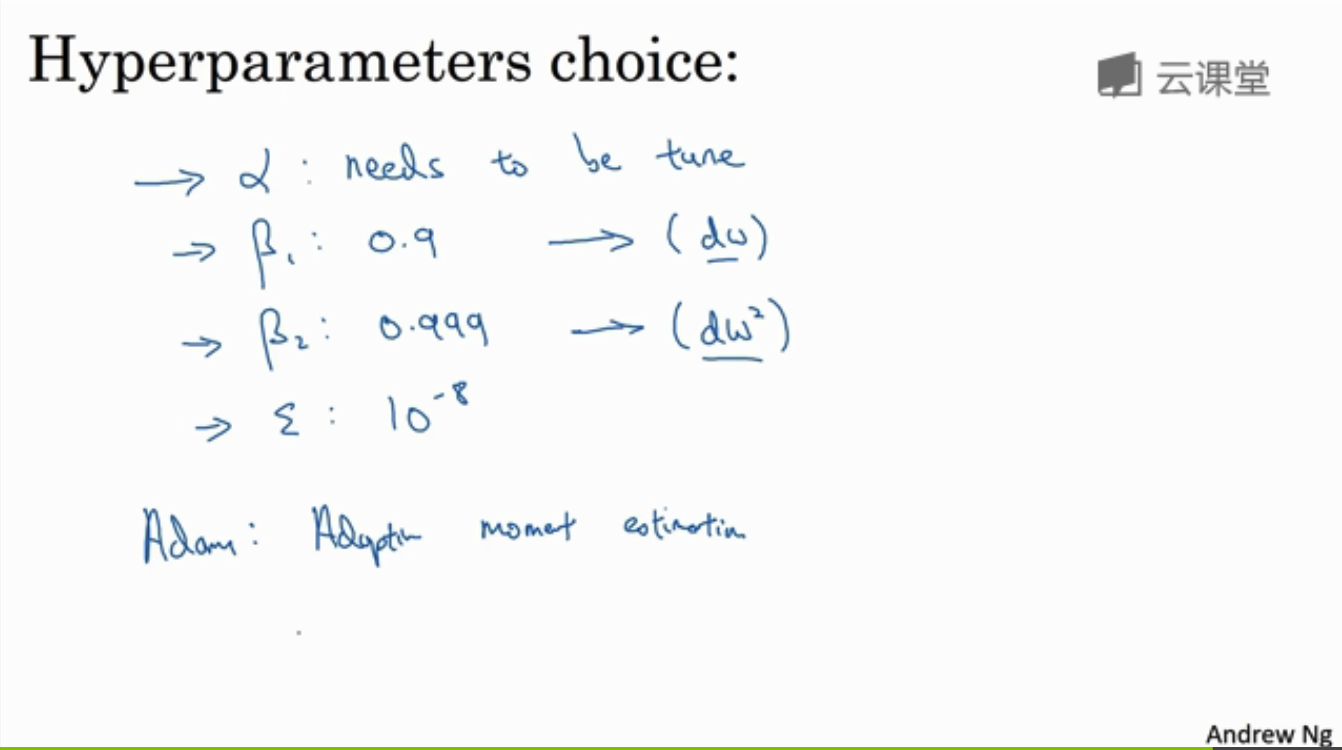 Hyperparameters choice:
云课堂
→ α : needs to be tune
→ β₁ : 0.9 → (dw)
→ β₂ : 0.999 → (dw²)
→ ε : 10⁻⁸
Adam : Adaptin moment estimation
Andrew Ng